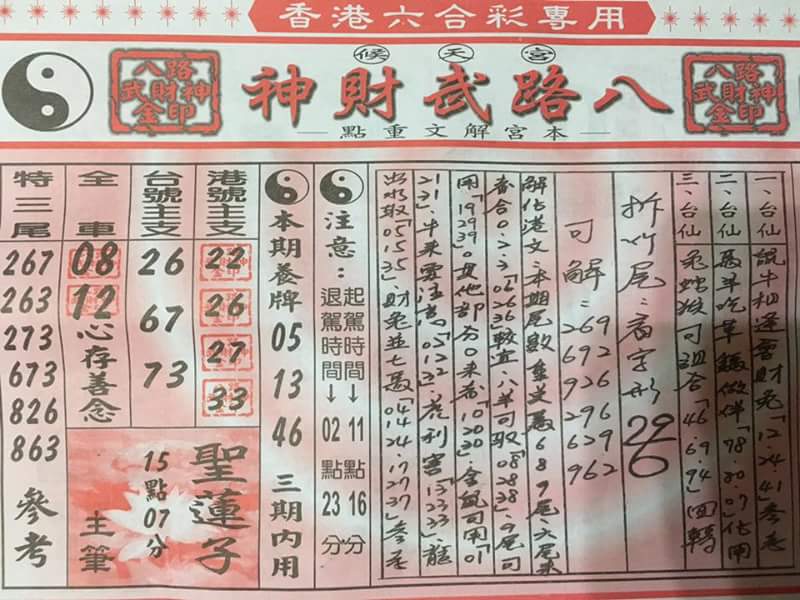 香港六合彩專用
候天宮
八路武財神
本宮解文重點
八路
武財神
金印
八路
武財神
金印
一、台仙 說牛相逢雲財兔「12.24.41」參考
二、台仙 馬羊吃草雞做伴「78.80.07」佔用
三、台仙 兔蛇猴可組合「46.69.94」回轉
拆竹尾：看字形 29 6
可解：269
692
926
296
629
962
解佔港文：本期尾數 6 8 9尾、六尾來
看合0.2.3「06 26 36」較宜 八羊可取「08 28 38」、9尾可
用「19 29 39」 其他部夯0來看「10 20 30」 可用「01
21 31」牛來要注意「05 12 32」 利害「13 23 33」、龍
出水取「05 15 35」、財兔並七馬「04 14 24、17 27 37」參考
注意：
起駕時間↓11點16分
退駕時間↓02點23分
本期養牌 05 13 46 三期內用
港號主支
22
26
27
33
台號主支
26
67
73
全車
08
12
心存善念
特三尾
267
263
273
673
826
863
參考
聖蓮子
15點07分
主筆